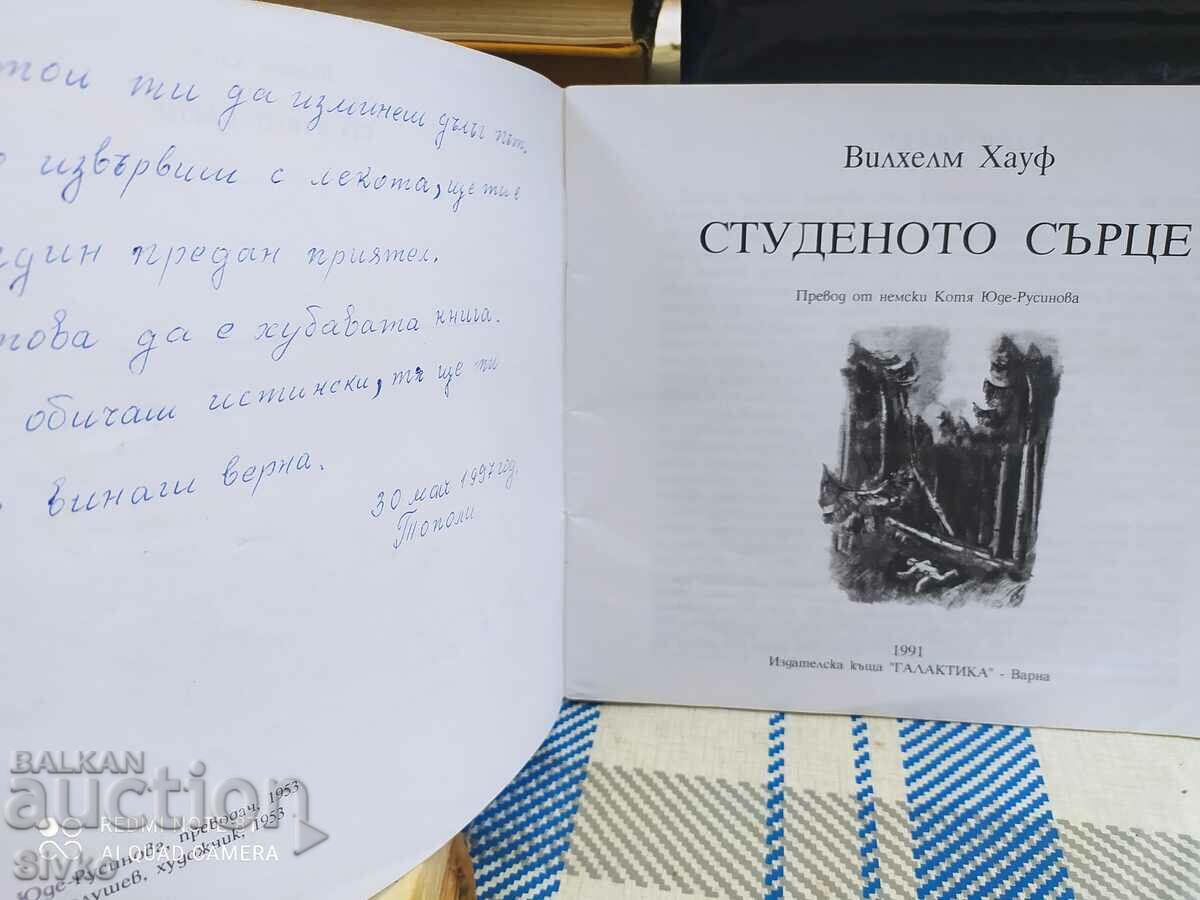 тои ти да изминеш дълъг път.
извървиш с лекота, ще ти е
един предан приятел.
това да е хубавата книга.
обичаш истински, тя ще ти
винаги верна.
30 май 1997 год.
Тополи
Юде-Русинова, преводач, 1953
лушев, художник, 1953
Вилхелм Хауф
СТУДЕНОТО СЪРЦЕ
Превод от немски Котя Юде-Русинова
1991
Издателска къща "ГАЛАКТИКА" - Варна
BALKAN
auction
slvks
REDMI NOTE 8T
AI QUAD CAMERA